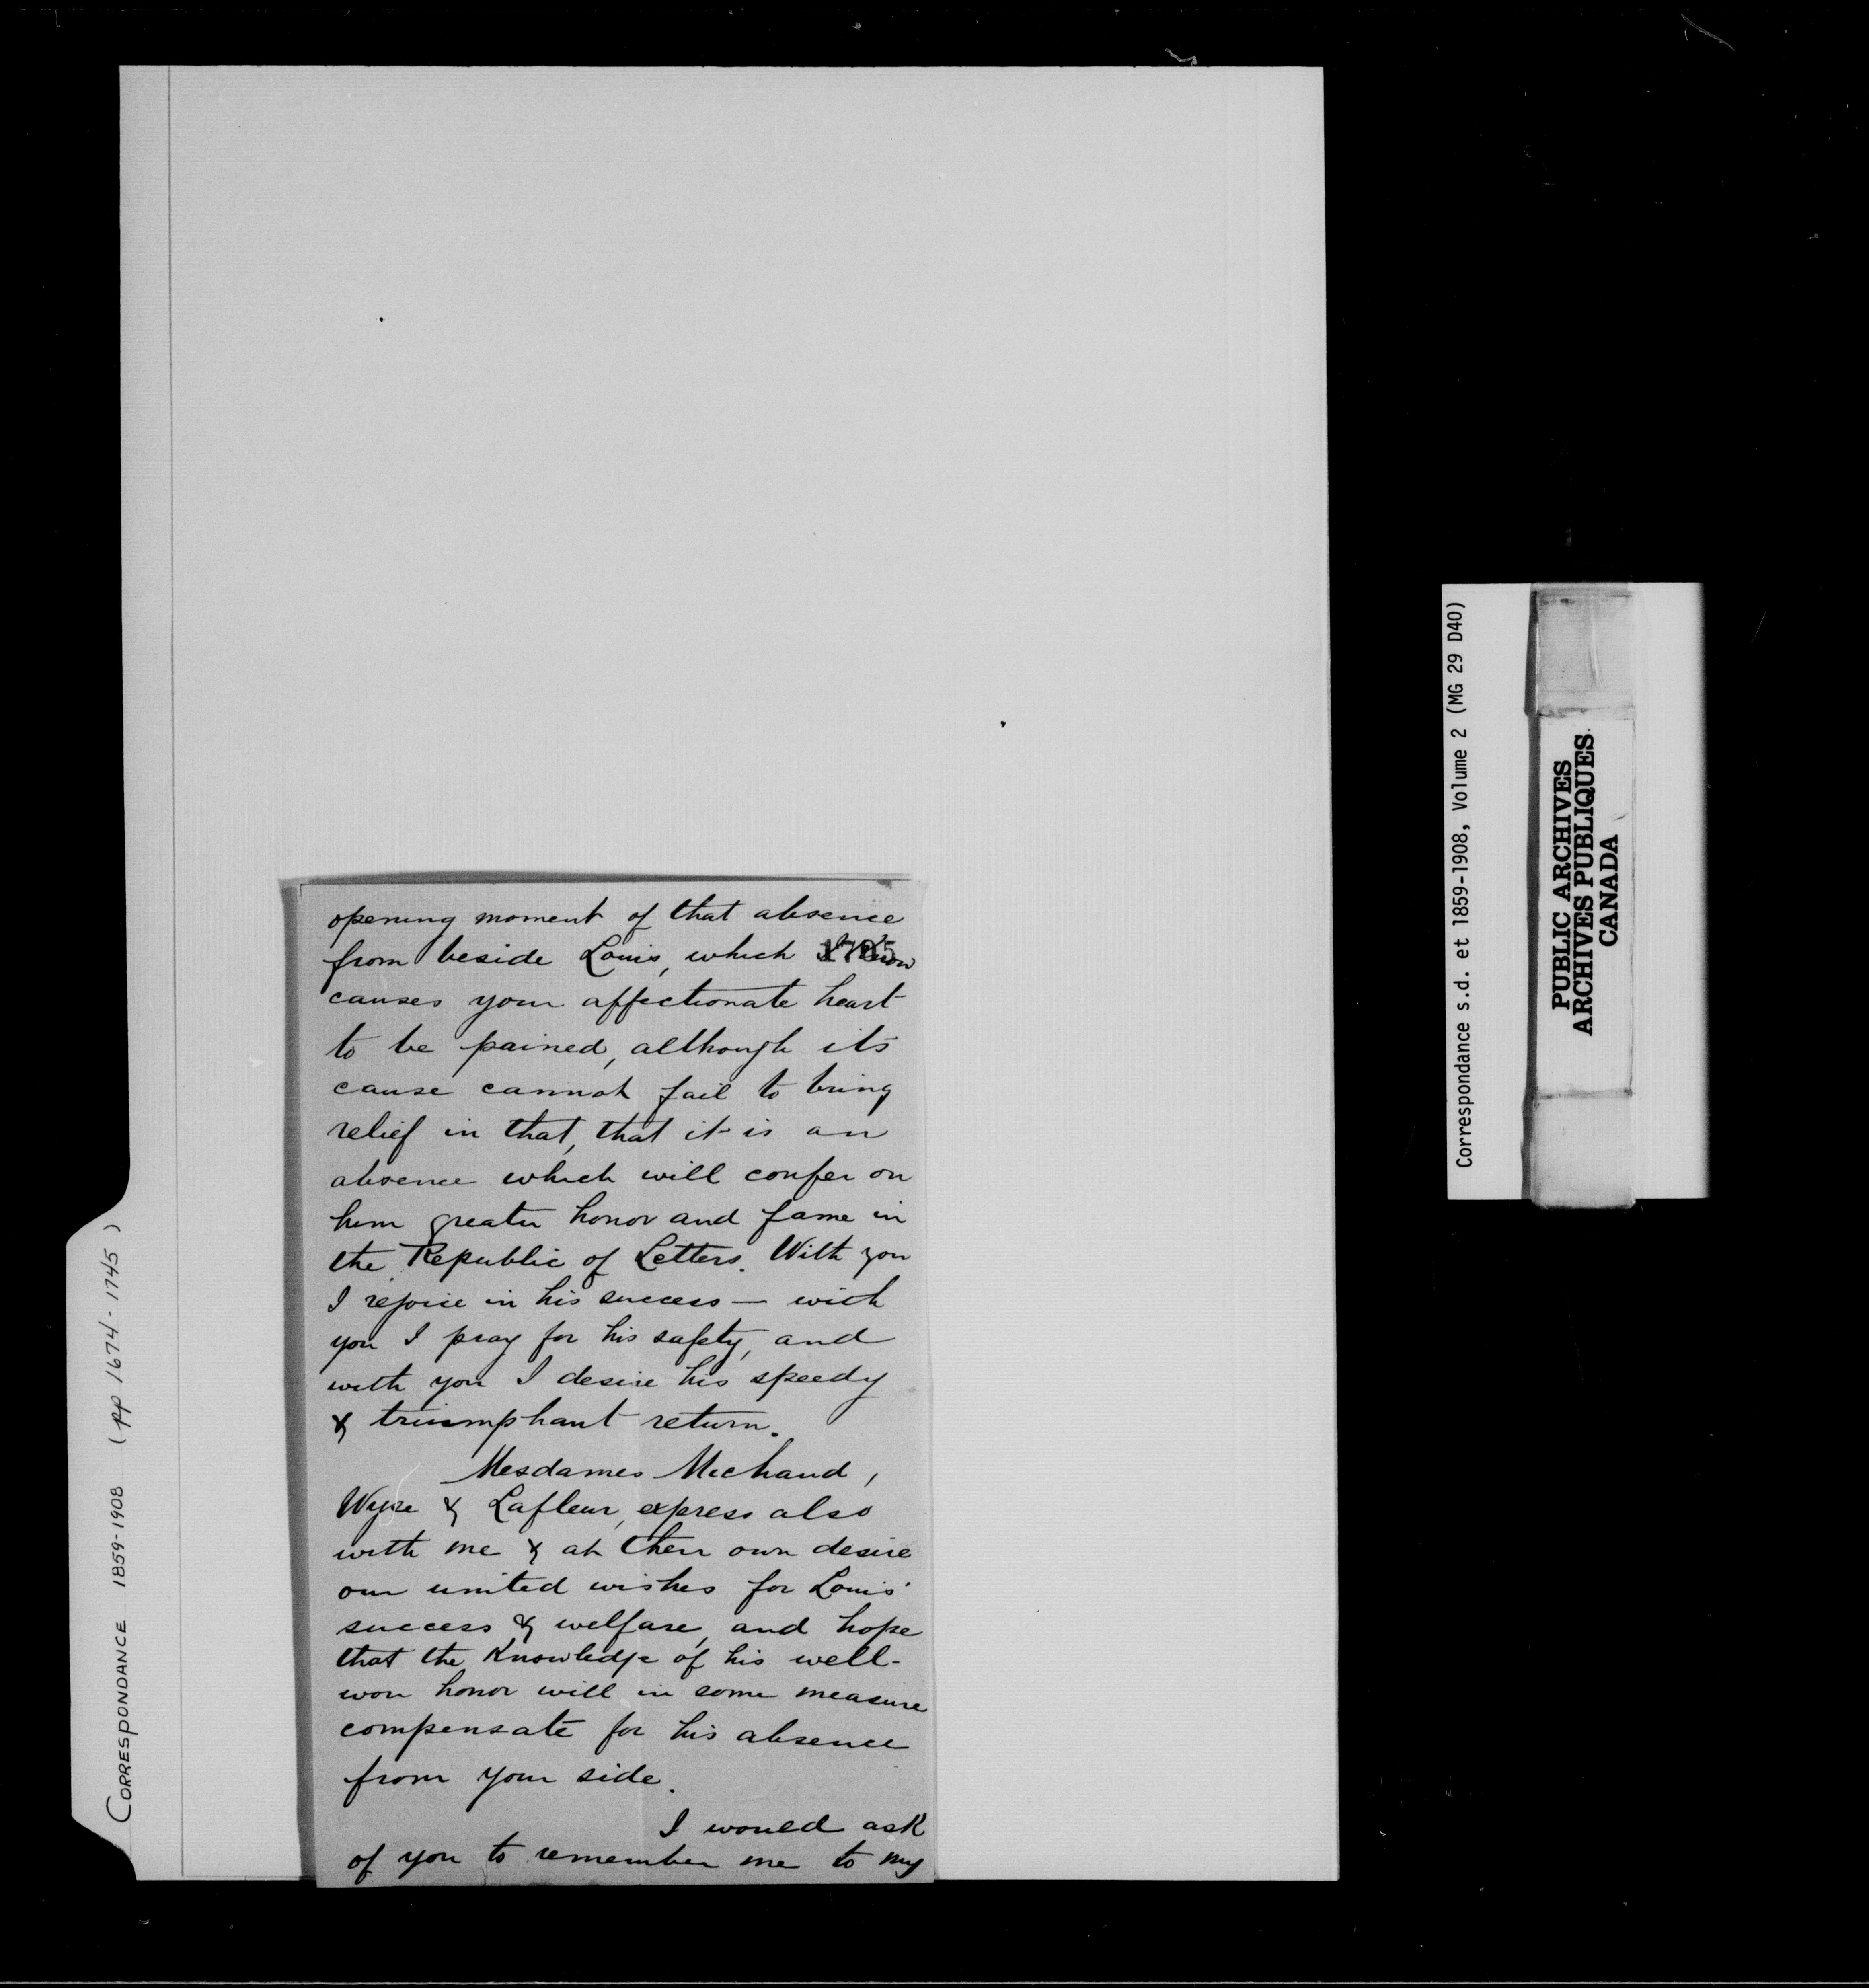 opening moment of that absence
from beside Louis, which I know
causes your affectionate heart
to be pained, although its
cause cannot fail to bring
relief in that, that it is an
absence which will confer on
him greater honor and fame in
the Republic of Letters. With you
I rejoice in his success — with
you I pray for his safety, and
with you I desire his speedy
& triumphant return.
Mesdames Michaud,
& Lafleur, express also
with me & at their own desire
our united wishes for Louis'
success & welfare, and hope
that the Knowledge of his well-
won honor will in some measure
compensate for his absence
from your side.
I would ask
of you to remember me to my
CORRESPONDANCE 1859-1908 (pp 1674-1745)
Correspondance s.d. et 1859-1908, Volume 2 (MG 29 D40)
PUBLIC ARCHIVES
ARCHIVES PUBLIQUES
CANADA